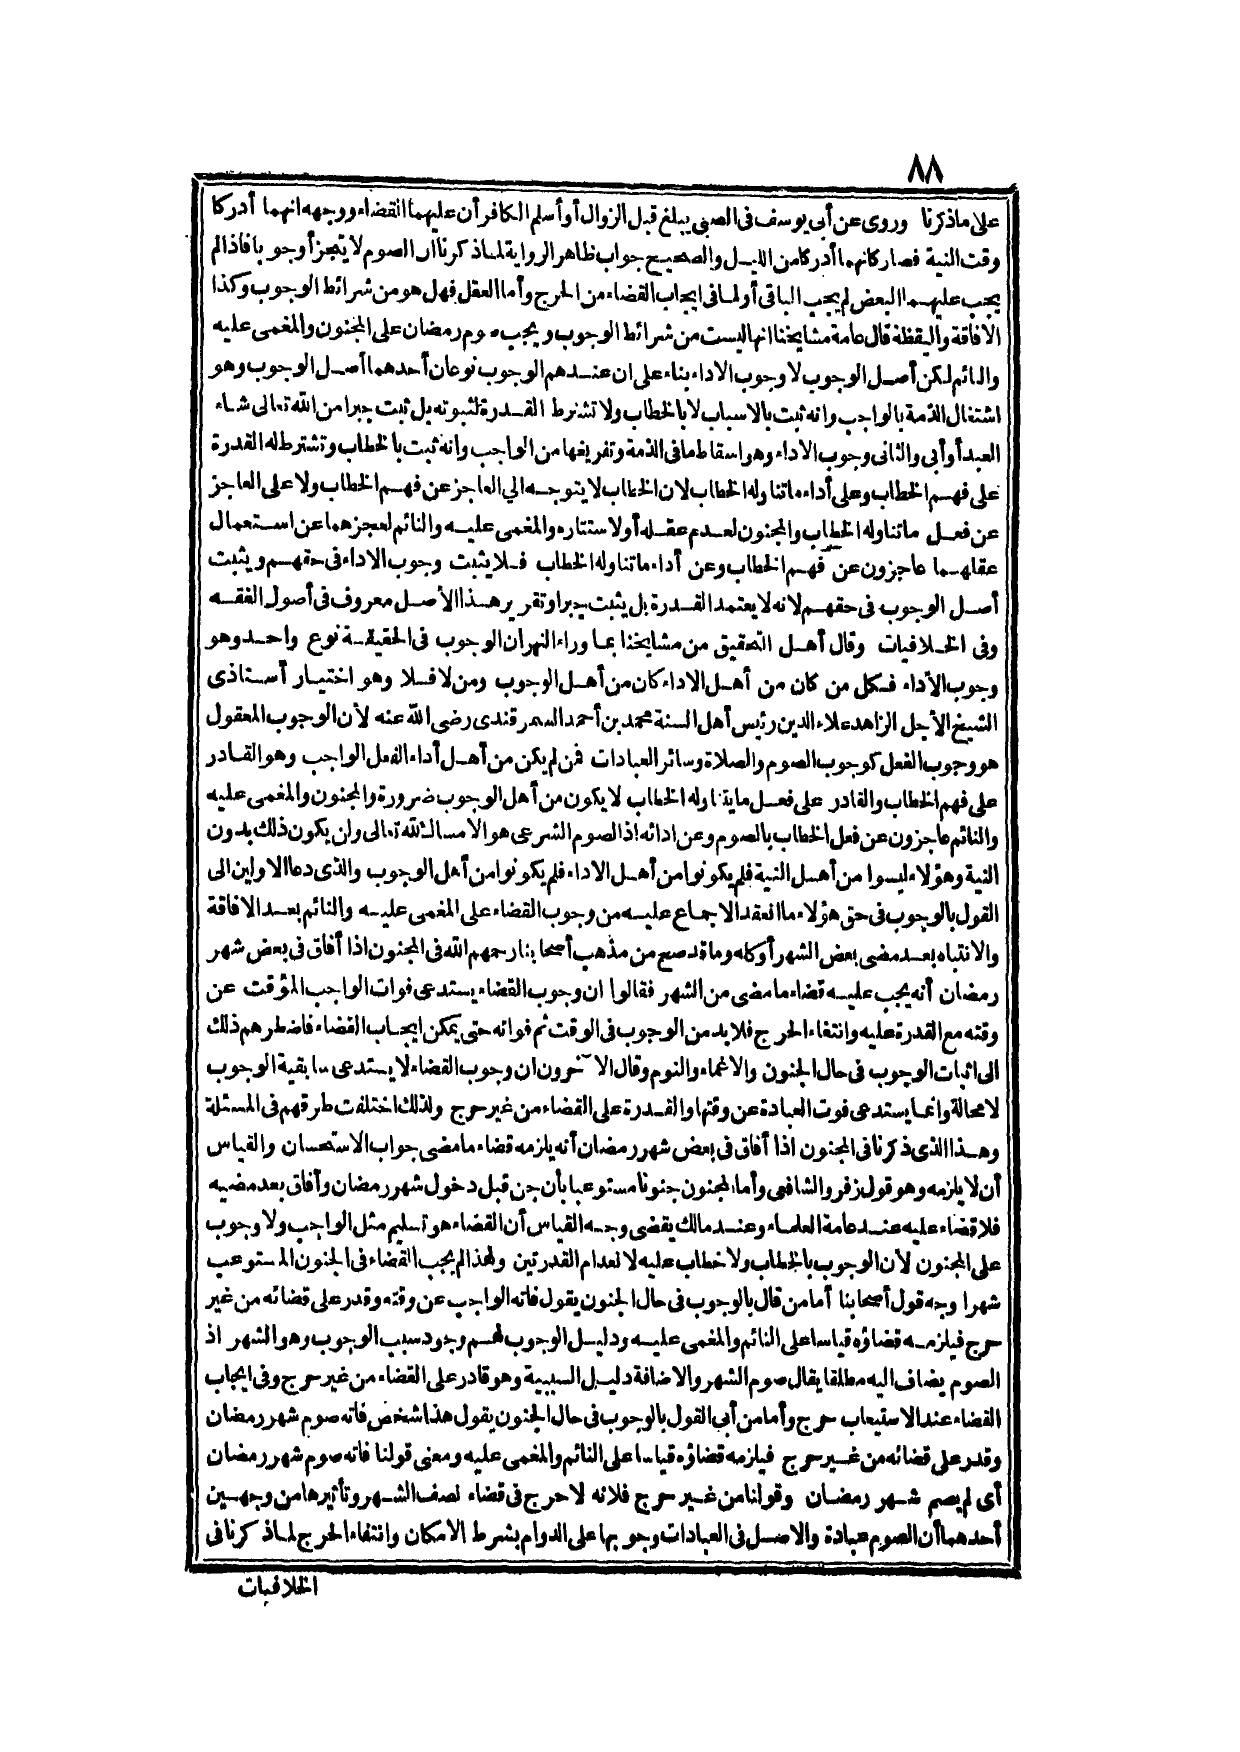 ٨٨
على ماذكرنا وروى عن أبى يوسف فى الصبى يبلغ قبل الزوال أو أسلم الكافر أن عليهما القضاء ووجهه انهما أدركا
وقت النية فصار كانهما أدركا من الليل والصحيح جواب ظاهر الرواية لما ذكرنا ان الصوم لا يتجزأ وجوبا فاذا لم
يجب عليهما البعض لم يجب الباقى أو لما فى ايجاب القضاء من الحرج وأما العقل فهل هو من شرائط الوجوب وكذا
الافاقة واليقظة قال عامة مشايخنا انها ليست من شرائط الوجوب ويجب صوم رمضان على المجنون والمغمى عليه
والنائم لكن أصل الوجوب لا وجوب الاداء بناء على ان عندهم الوجوب نوعان أحدهما أصل الوجوب وهو
اشتغال الذمة بالواجب وانه ثبت بالاسباب لا بالخطاب ولا تشترط القدرة لثبوته بل ثبت جبرا من الله تعالى شاء
العبد أو أبى والثانى وجوب الاداء وهو اسقاط ما فى الذمة وتفريغها من الواجب وانه ثبت بالخطاب وتشترط له القدرة
على فهم الخطاب وعلى أداء ما تناوله الخطاب لان الخطاب لا يتوجه الى العاجز عن فهم الخطاب ولا على العاجز
عن فعل ما تناوله الخطاب والمجنون لعدم عقله أو لاستتاره والمغمى عليه والنائم لعجزهما عن استعمال
عقلهما عاجزون عن فهم الخطاب وعن أداء ما تناوله الخطاب فلا يثبت وجوب الاداء فى حقهم ويثبت
أصل الوجوب فى حقهم لانه لا يعتمد القدرة بل يثبت جبرا وتقرير هذا الأصل معروف فى أصول الفقه
وفى الخلافيات وقال أهل التحقيق من مشايخنا بما وراء النهر ان الوجوب فى الحقيقة نوع واحد وهو
وجوب الأداء فكل من كان من أهل الاداء كان من أهل الوجوب ومن لا فلا وهو اختيار أستاذى
الشيخ الأجل الزاهد علاء الدين رئيس أهل السنة محمد بن أحمد السمرقندى رضى الله عنه لأن الوجوب المعقول
هو وجوب الفعل كوجوب الصوم والصلاة وسائر العبادات فمن لم يكن من أهل أداء الفعل الواجب وهو القادر
على فهم الخطاب والقادر على فعل ما يتناوله الخطاب لا يكون من أهل الوجوب ضرورة والمجنون والمغمى عليه
والنائم عاجزون عن فعل الخطاب بالصوم وعن ادائه اذ الصوم الشرعى هو الامساك لله تعالى ولن يكون ذلك بدون
النية وهؤلاء ليسوا من أهل النية فلم يكونوا من أهل الاداء فلم يكونوا من أهل الوجوب والذى دعا الاولين الى
القول بالوجوب فى حق هؤلاء ما انعقد الاجماع عليه من وجوب القضاء على المغمى عليه والنائم بعد الافاقة
والانتباه بعد مضى بعض الشهر أو كله وما قد صح من مذهب أصحابنا رحمهم الله فى المجنون اذا أفاق فى بعض شهر
رمضان أنه يجب عليه قضاء ما مضى من الشهر فقالوا ان وجوب القضاء يستدعى فوات الواجب المؤقت عن
وقته مع القدرة عليه وانتفاء الحرج فلا بد من الوجوب فى الوقت ثم فواته حتى يمكن ايجاب القضاء فاضطرهم ذلك
الى اثبات الوجوب فى حال الجنون والاغماء والنوم وقال الآخرون ان وجوب القضاء لا يستدعى سابقية الوجوب
لا محالة وانما يستدعى فوت العبادة عن وقتها والقدرة على القضاء من غير حرج ولذلك اختلفت طرقهم فى المسئلة
وهذا الذى ذكرنا فى المجنون اذا أفاق فى بعض شهر رمضان أنه يلزمه قضاء ما مضى جواب الاستحسان والقياس
أن لا يلزمه وهو قول زفر والشافعى وأما المجنون جنونا مستوعبا بأن جن قبل دخول شهر رمضان وأفاق بعد مضيه
فلا قضاء عليه عند عامة العلماء وعند مالك يقضى وجه القياس أن القضاء هو تسليم مثل الواجب ولا وجوب
على المجنون لأن الوجوب بالخطاب ولا خطاب عليه لانعدام القدرتين ولهذا لم يجب القضاء فى الجنون المستوعب
شهرا وجه قول أصحابنا أما من قال بالوجوب فى حال الجنون يقول فاته الواجب عن وقته وقدر على قضائه من غير
حرج فيلزمه قضاؤه قياسا على النائم والمغمى عليه ودليل الوجوب لهم وجود سبب الوجوب وهو الشهر اذ
الصوم يضاف اليه مطلقا يقال صوم الشهر والاضافة دليل السببية وهو قادر على القضاء من غير حرج وفى ايجاب
القضاء عند الاستيعاب حرج وأما من أبى القول بالوجوب فى حال الجنون يقول هذا شخص فاته صوم شهر رمضان
وقدر على قضائه من غير حرج فيلزمه قضاؤه قياسا على النائم والمغمى عليه ومعنى قولنا فاته صوم شهر رمضان
أى لم يصم شهر رمضان وقولنا من غير حرج فلانه لا حرج فى قضاء نصف الشهر وتأثيرها من وجهين
أحدهما أن الصوم عبادة والاصل فى العبادات وجوبها على الدوام بشرط الامكان وانتفاء الحرج لما ذكرنا فى
الخلافيات